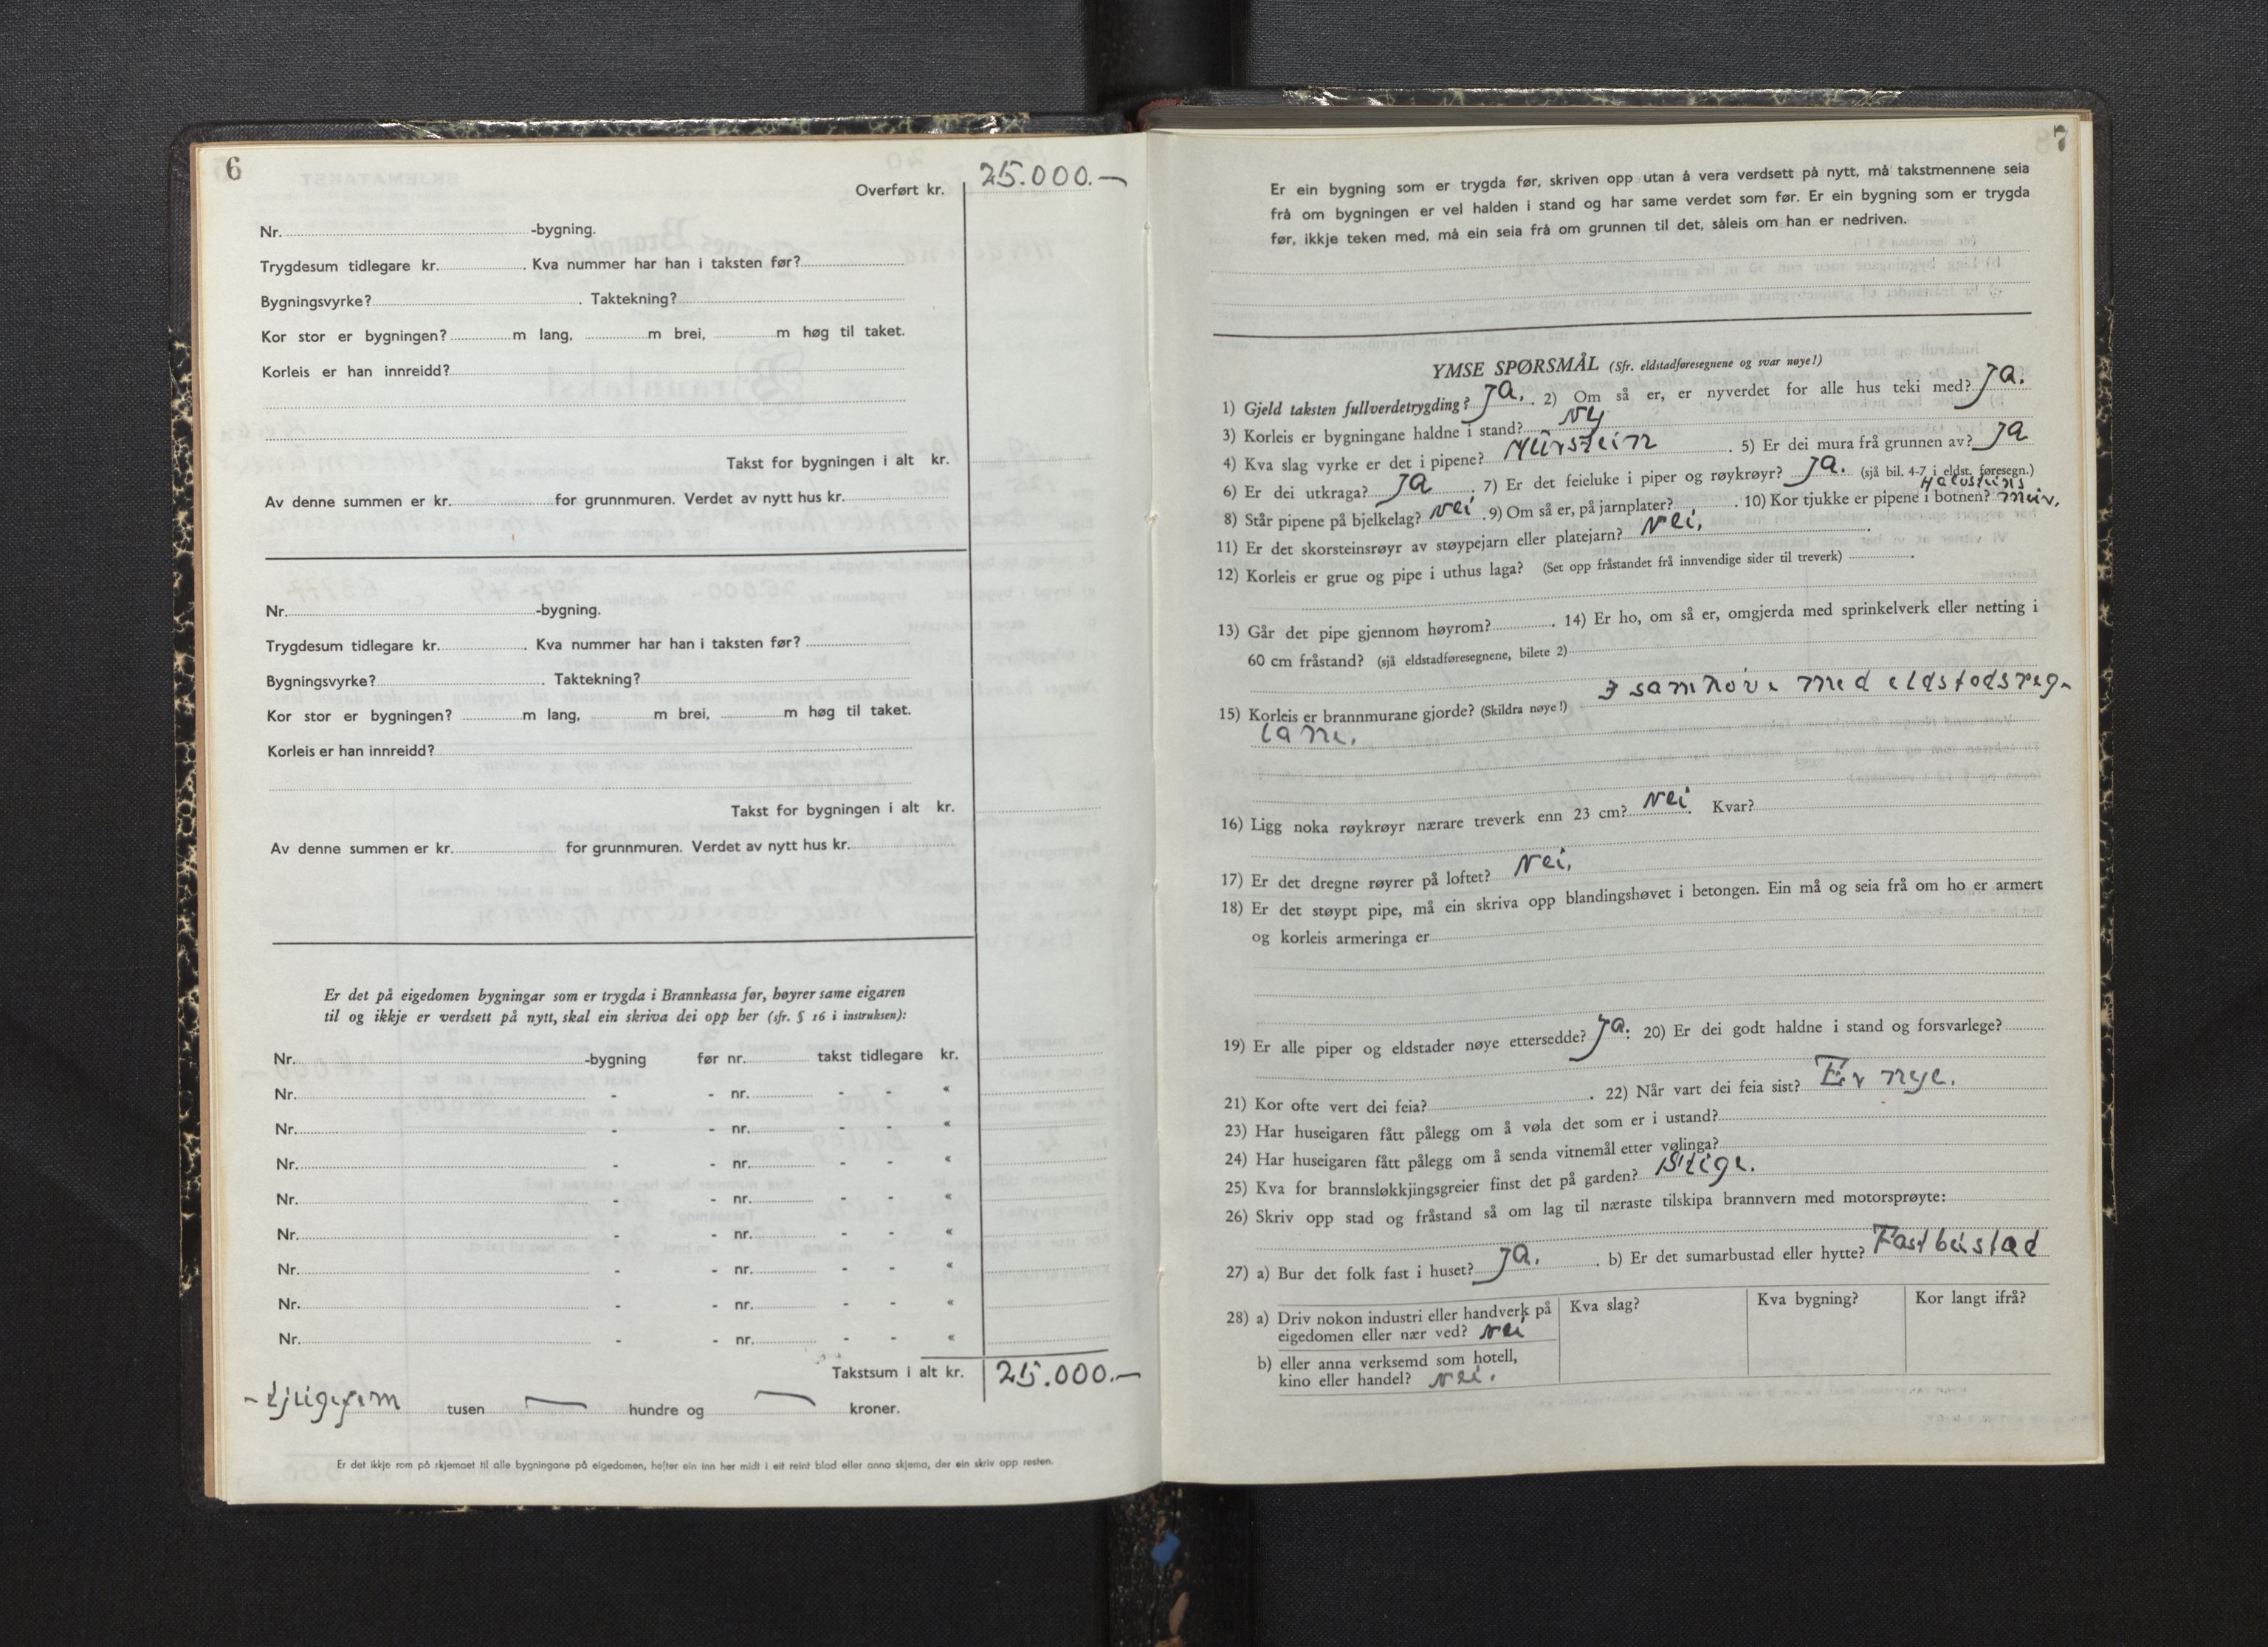 6
Overført kr. 25.000.-
Nr. -bygning.
Trygdesum tidlegare kr. . Kva nummer har han i taksten før?
Bygningsvyrke? . Taktekning?
Kor stor er bygningen? m lang, m brei, m høg til taket.
Korleis er han innreidd?
Takst for bygningen i alt kr.
Av denne summen er kr. for grunnmuren. Verdet av nytt hus kr.
Nr. -bygning.
Trygdesum tidlegare kr. . Kva nummer har han i taksten før?
Bygningsvyrke? . Taktekning?
Kor stor er bygningen? m lang, m brei, m høg til taket.
Korleis er han innreidd?
Takst for bygningen i alt kr.
Av denne summen er kr. for grunnmuren. Verdet av nytt hus kr.
Er det på eigedomen bygningar som er trygda i Brannkassa før, høyrer same eigaren
til og ikkje er verdsett på nytt, skal ein skriva dei opp her (sfr. § 16 i instruksen):
Nr. -bygning før nr. takst tidlegare kr.
Nr. - - nr. - - «
Nr. - - nr. - - «
Nr. - - nr. - - «
Nr. - - nr. - - «
Nr. - - nr. - - «
Nr. - - nr. - - «
Nr. - - nr. - - «
Nr. - - nr. - - «
Takstsum i alt kr. 25.000.-
- tjugefem tusen — hundre og — kroner.
Er det ikkje rom på skjemaet til alle bygningane på eigedomen, hefter ein inn her midt i eit reint blad eller anna skjema, der ein skriv opp resten.
7
Er ein bygning som er trygda før, skriven opp utan å vera verdsett på nytt, må takstmennene seia
frå om bygningen er vel halden i stand og har same verdet som før. Er ein bygning som er trygda
før, ikkje teken med, må ein seia frå om grunnen til det, såleis om han er nedriven.
YMSE SPØRSMÅL (Sfr. eldstadføresegnene og svar nøye!)
1) Gjeld taksten fullverdetrygding? Ja. . 2) Om så er, er nyverdet for alle hus teki med? Ja.
3) Korleis er bygningane haldne i stand? Ny
4) Kva slag vyrke er det i pipene? Murstein . 5) Er dei mura frå grunnen av? Ja
6) Er dei utkraga? Ja . 7) Er det feieluke i piper og røykrøyr? Ja. (sjå bil. 4-7 i eldst. føresegn.)
8) Står pipene på bjelkelag? Nei . 9) Om så er, på jarnplater? . 10) Kor tjukke er pipene i botnen? Halvsteins mur.
11) Er det skorsteinsrøyr av støypejarn eller platejarn? Nei. .
12) Korleis er grue og pipe i uthus laga? (Set opp fråstandet frå innvendige sider til treverk) .
13) Går det pipe gjennom høyrom? . 14) Er ho, om så er, omgjerda med sprinkelverk eller netting i
60 cm fråstand? (sjå eldstadføresegnene, bilete 2)
15) Korleis er brannmurane gjorde? (Skildra nøye!) I samhøve med eldstadsreg-
lane.
16) Ligg noka røykrøyr nærare treverk enn 23 cm? Nei . Kvar?
17) Er det dregne røyrer på loftet? Nei.
18) Er det støypt pipe, må ein skriva opp blandingshøvet i betongen. Ein må og seia frå om ho er armert
og korleis armeringa er
19) Er alle piper og eldstader nøye ettersedde? Ja. 20) Er dei godt haldne i stand og forsvarlege?
21) Kor ofte vert dei feia? . 22) Når vart dei feia sist? Er nye.
23) Har huseigaren fått pålegg om å vøla det som er i ustand?
24) Har huseigaren fått pålegg om å senda vitnemål etter vølinga?
25) Kva for brannsløkkjingsgreier finst det på garden? Stige.
26) Skriv opp stad og fråstand så om lag til næraste tilskipa brannvern med motorsprøyte:
27) a) Bur det folk fast i huset? Ja. . b) Er det sumarbustad eller hytte? Fast bustad
28) a) Driv nokon industri eller handverk på eigedomen eller nær ved? Nei Kva slag? Kva bygning? Kor langt ifrå?
b) eller anna verksemd som hotell,
kino eller handel? Nei.